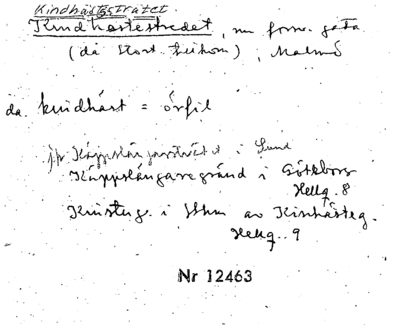 Kindhäststrätet.
Kindhästestredet, nu förs. gata
(da stort ), Malmö
da. kindhäst = örfil
jfr Käppslängarsträtet i Lund
Käppslängaregränd i Göteborg
Hellq. 8
Kinstug. i Sthm av Kinhästeg.
Hellq. 9
Nr 12463